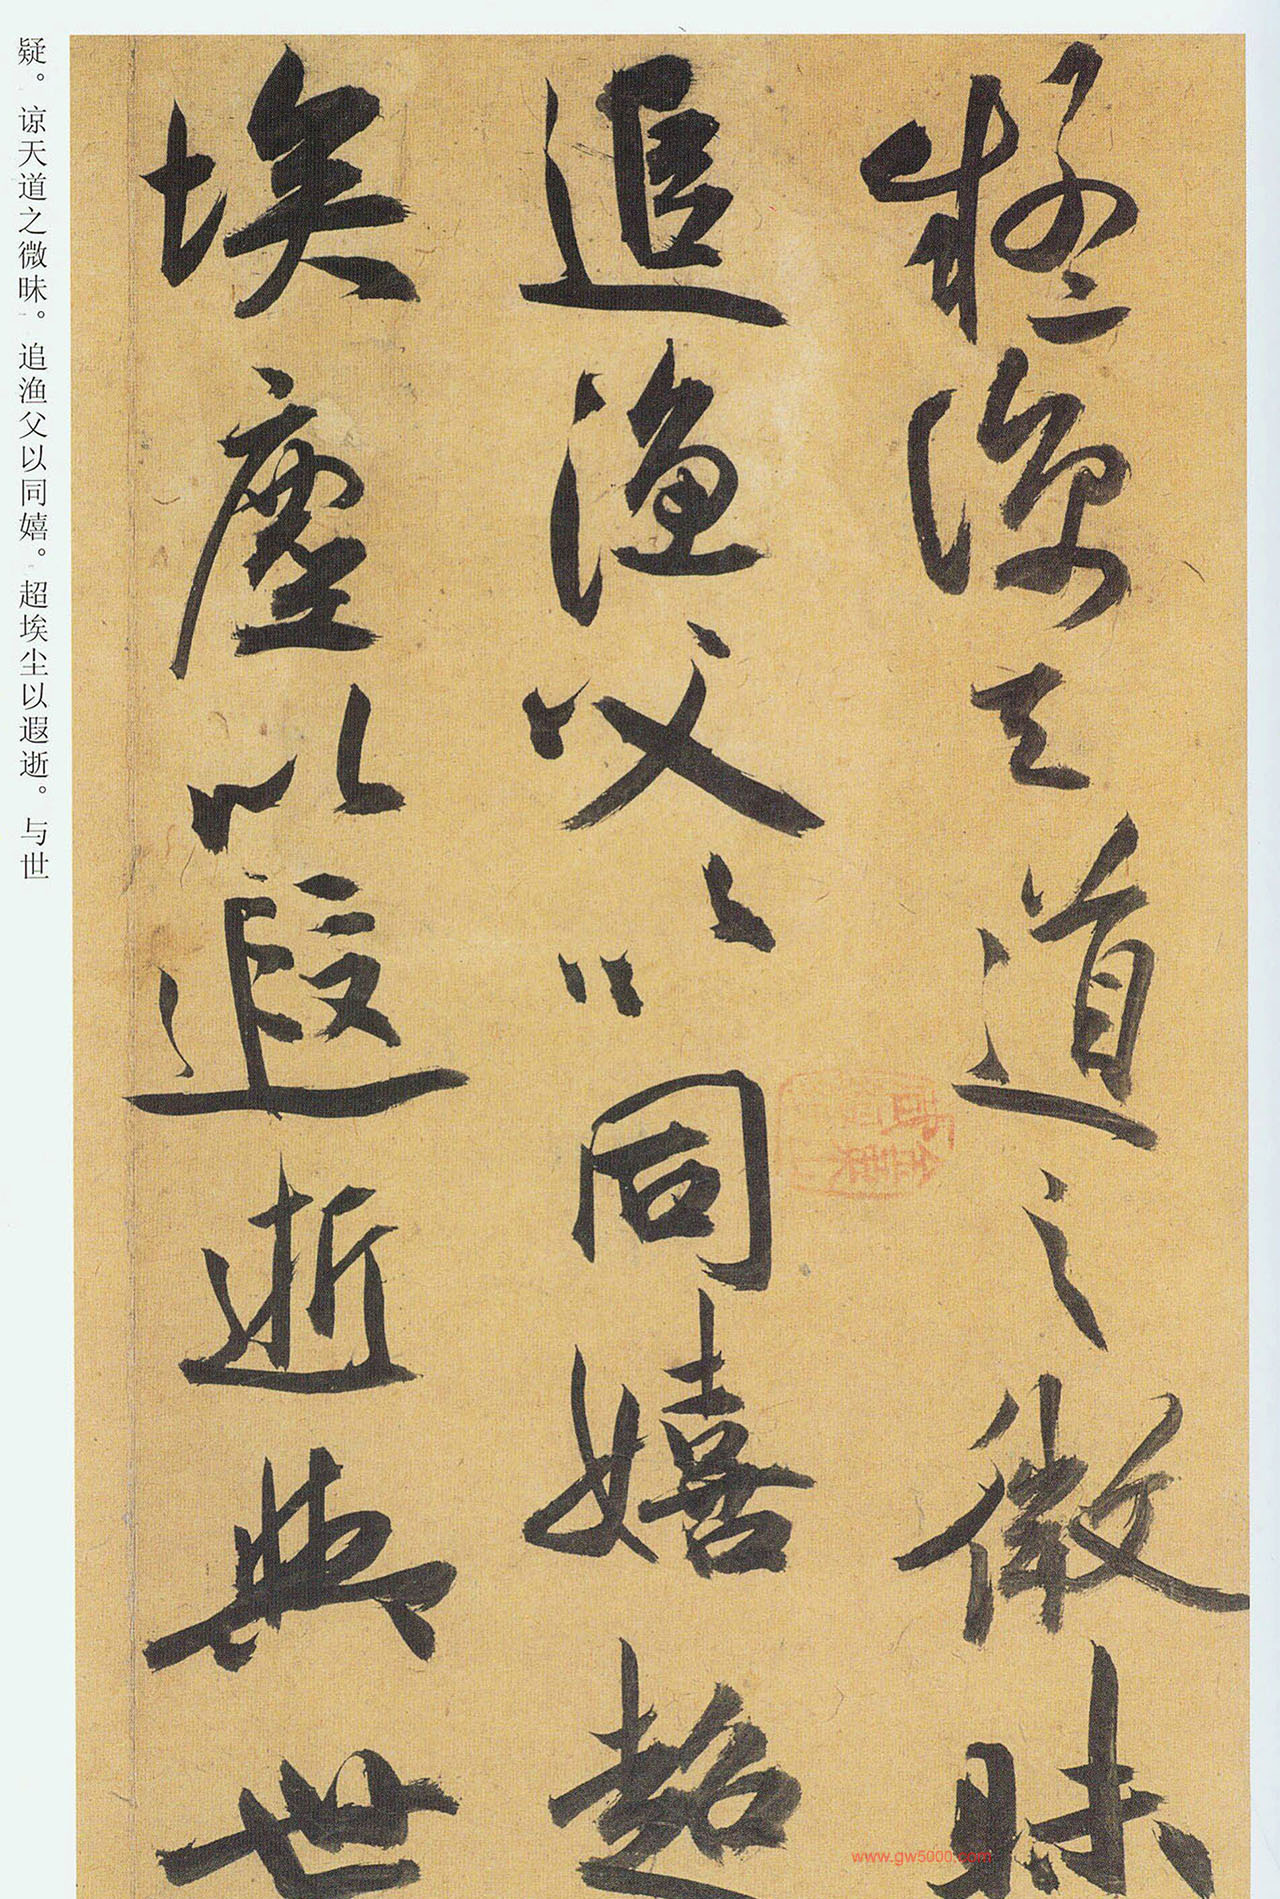 疑諒天道之微昧
追漁父以同嬉超
埃塵以遐逝與世
疑。谅天道之微昧。追渔父以同嬉。超埃尘以遐逝。与世
www.gw5000.com